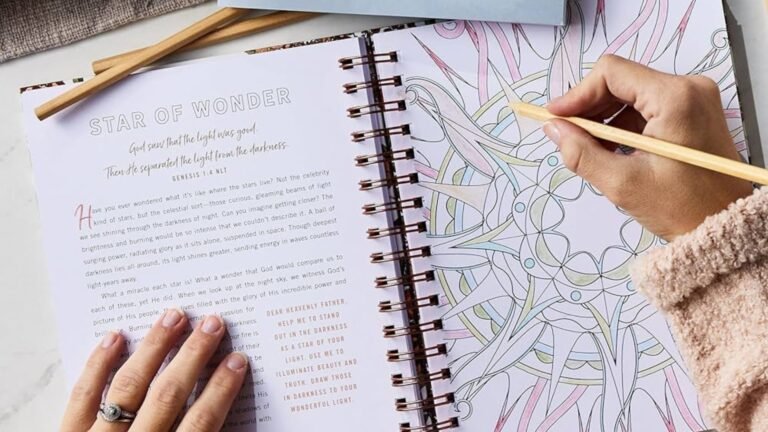 STAR OF WONDER
God saw that the light was good.
Then He separated the light from the darkness.
GENESIS 1:4 NLT
Have you ever wondered what it's like where the stars live? Not the celebrity
kind of stars, but the celestial sort—those curious, gleaming beams of light
we see shining through the darkness of night. Can you imagine getting closer? The
brightness and burning would be so intense that we couldn't describe it. A ball of
surging power, radiating glory as it sits alone, suspended in space. Though deepest
darkness lies all around, its light shines greater, sending energy in waves countless
light-years away.
What a miracle each star is! What a wonder that God would compare us to
each of these, yet He did. When we look up at the night sky, we witness God's
picture of His people. Our lives filled with the glory of His incredible power and
Burning passion for
darkness.
our fire is
of their
be
and
shadows of
the world with
DEAR HEAVENLY FATHER,
HELP ME TO STAND
OUT IN THE DARKNESS
AS A STAR OF YOUR
LIGHT. USE ME TO
ILLUMINATE BEAUTY AND
TRUTH. DRAW THOSE
IN DARKNESS TO YOUR
WONDERFUL LIGHT.